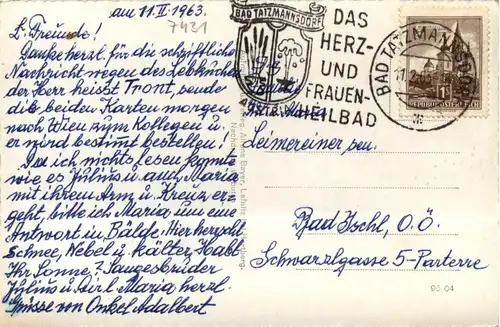 am 11.II.1963.
7431
L. Freunde!
Danke herzl. für die schriftliche
Nachricht wegen des Lebkuchen
der Herr heisst Tront, sende
die beiden Karten morgen
nach Wien zum Kollegen u.
er wird bestimmt bestellen!
Da ich nichts lesen konnte
wie es Julius u. auch Maria
mit ihrem Arm u. Kreuz er-
geht, bitte ich Maria um eine
Antwort in Bälde. Hier herzhaft
Schnee, Nebel u. kälter, Habt
Ihr Sonne?
Julius u. Dirl. Maria herzl.
Grüsse von Onkel Adalbert
BAD TATZMANNSDORF
DAS
HERZ-
UND
FRAUEN-
HEILBAD
BAD TATZMANNSDORF
11.2.63
1S
REPUBLIK ÖSTERREICH
Familie
Leimereiner sen.
Bad Ischl, O.Ö.
Schwarzlgasse 5-Parterre
96 04